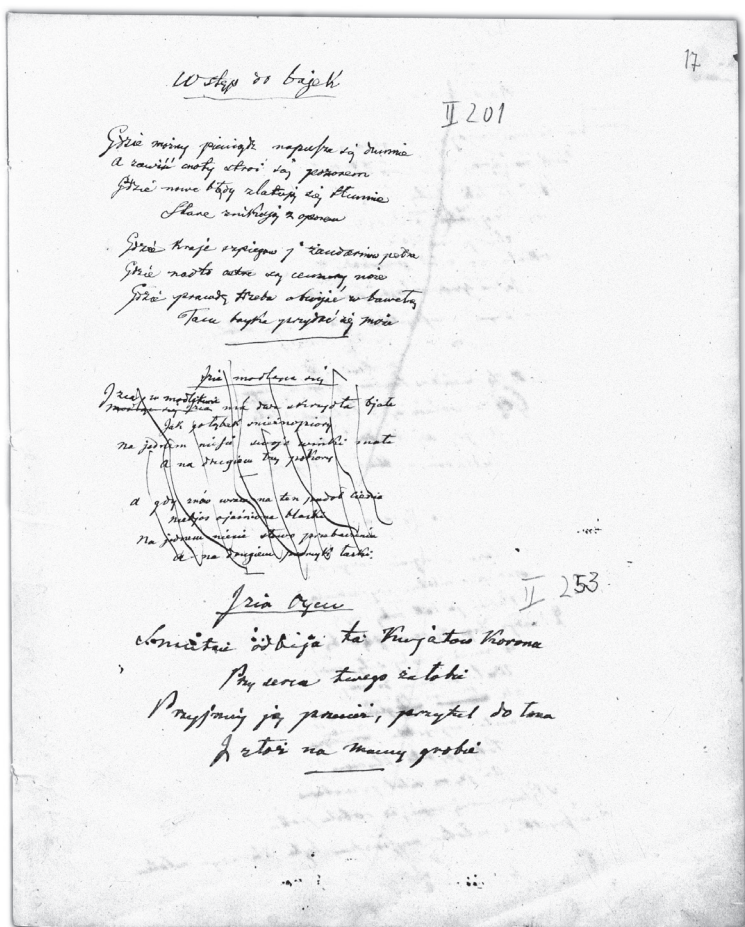 17
Wstęp do bajek
II 201
Gdzie możny pieniądz napusza się dumnie
A zawiść cnoty stroi się pozorem
Gdzie nowe błędy zlatują się tłumnie
Stare znikają z oporem
Gdzie kraje szpiegów i żandarmów pełne
Gdzie nadto ostre są cenzury noże
Gdzie prawdę trzeba obwijać w bawełnę
Tam bajka przydać się może
Izia modląca się
Izia w modlitwie
Izia ma dwa skrzydła białe
Jak gołębek śnieżnopióry
Na jednem niesie swoje winki małe
A na drugiem trzy pokory
A gdy znów wraca na ten padoł
niebios blaski
Na jednem niesie słowo przebaczenia
A na drugiem łaski.
Izia Ojcu
II 253
odbija ta kwiatów korona
Przy serca twego żałobie
Przyjmij ją przecież, przytul do łona
I złóż na mamy grobie